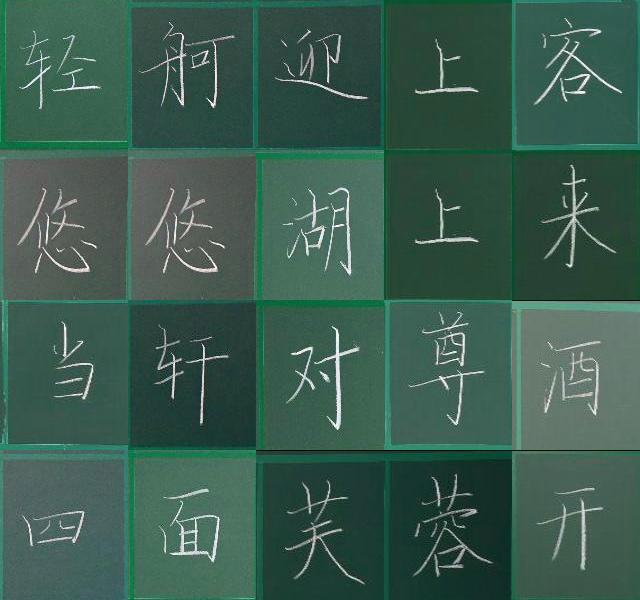 轻舸迎上客
悠悠湖上来
当轩对尊酒
四面芙蓉开